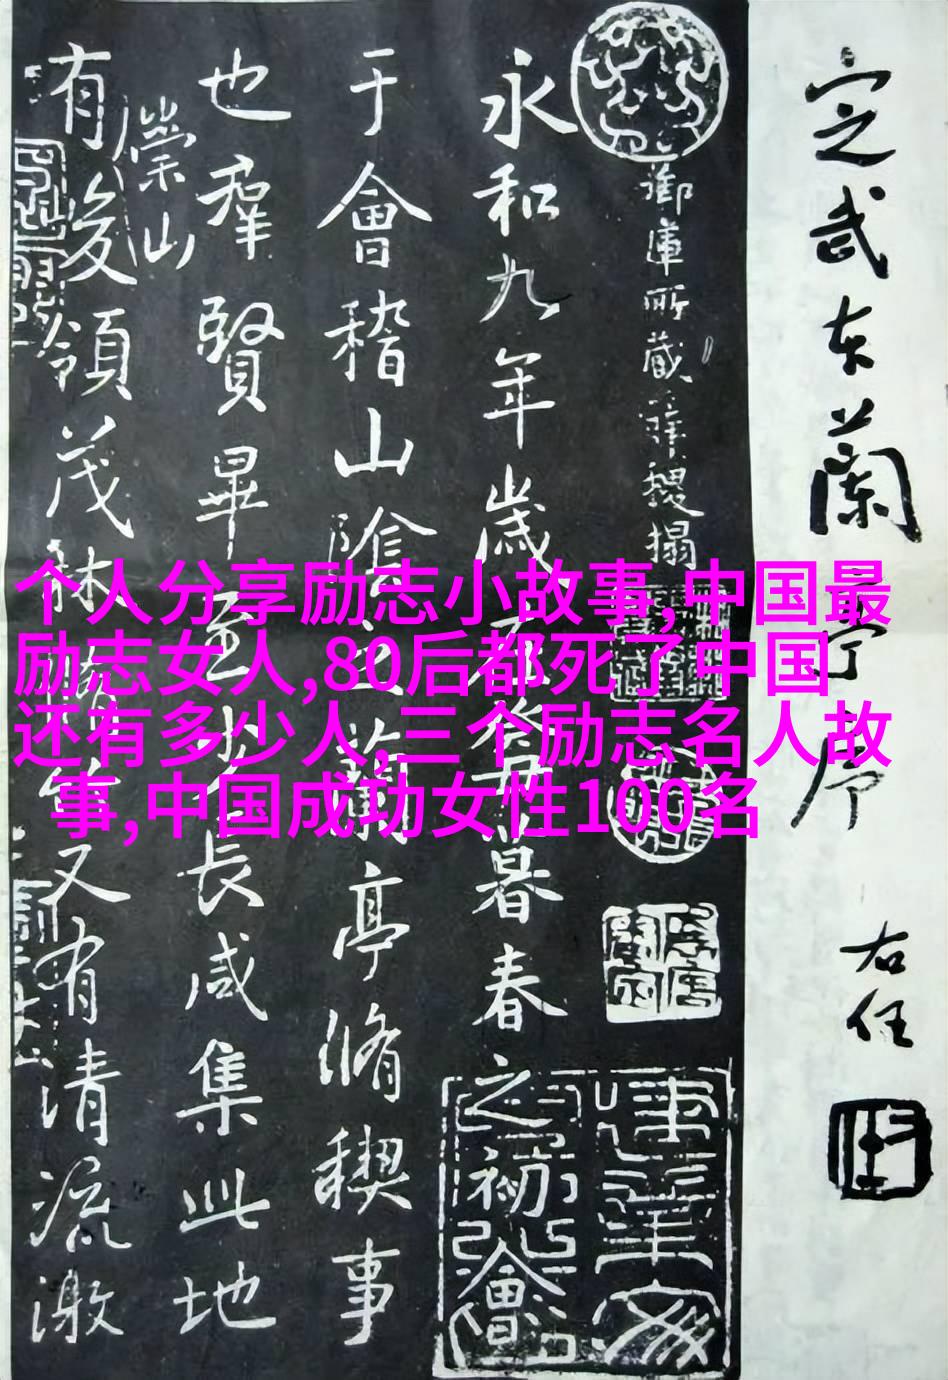 定武本蘭亭序
右任
御庫所藏薛稷搨
永和九年歲在癸丑暮春之初會
于會稽山陰之蘭亭脩稧事
也羣賢畢至少長咸集此地
崇山
有峻領茂林脩竹又有清流激
个人分享励志小故事,中国最
励志女人,80后都死了中国
还有多少人,三个励志名人故
事,中国成功女性100名